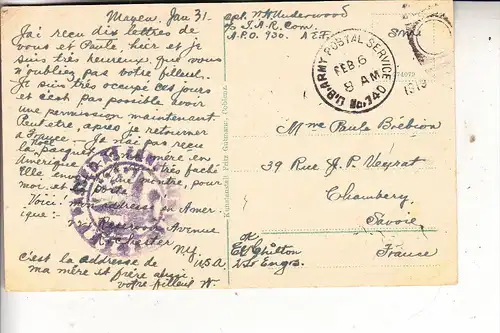 Mayen, Jan 31.
J'ai reçu dix lettres de
vous et Paule, hier et je
suis très heureux que vous
n'oubliez pas votre filleul.
Je suis très occupé ces jours
et c'est pas possible avoir
une permission maintenant
Peut-être, après je retourner
à France. Je n'ai pas reçu
la paquet
Noël
mère en
Amérique très faché
Elle montre, pour
moi, et
Voici! mon address en Amer-
ique:- Avenue
Rochester
N.Y.
U.S.A.
C'est la addresse de
ma mère et frère aussi.
votre filleul W.
Cpt. W.H. Underwood
S.A.R. Com.
A.P.O. 930. A.E.F.
U.S. ARMY POSTAL SERVICE
FEB 6
8 AM
740
1919
Mme Paule Brébion
39 Rue J. P. Veyrat
Chambery
Savoie
France
OK
Engrs.